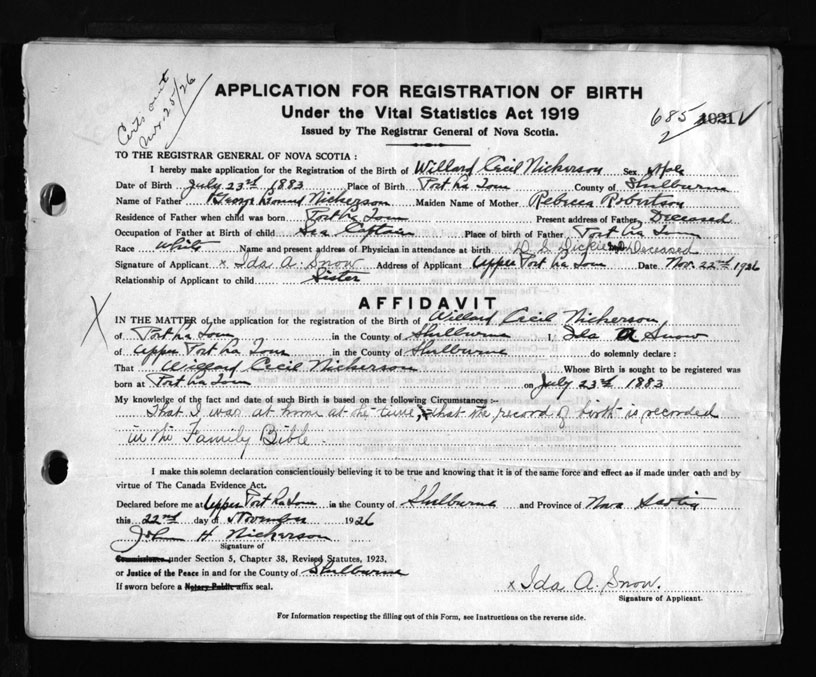 Certs out
Nov. 25/26
APPLICATION FOR REGISTRATION OF BIRTH
Under the Vital Statistics Act 1919
Issued by The Registrar General of Nova Scotia.
685 1921 ✓
2
TO THE REGISTRAR GENERAL OF NOVA SCOTIA :
I hereby make application for the Registration of the Birth of Willard Cecil Nickerson Sex Male
Date of Birth July 23rd 1883 Place of Birth Port La Tour County of Shelburne
Name of Father Nickerson Maiden Name of Mother Rebecca Robertson
Residence of Father when child was born Port La Tour Present address of Father Deceased
Occupation of Father at Birth of child Sea Captain Place of birth of Father Port La Tour
Race White Name and present address of Physician in attendance at birth Deceased
Signature of Applicant x Ida A. Snow Address of Applicant Upper Port La Tour Date Nov. 22nd 1926
Relationship of Applicant to child Sister
AFFIDAVIT
X
IN THE MATTER of the application for the registration of the Birth of Willard Cecil Nickerson
of Port La Tour in the County of Shelburne I, Ida A Snow
of Upper Port La Tour in the County of Shelburne do solemnly declare :
That Willard Cecil Nickerson Whose Birth is sought to be registered was
born at Port La Tour on July 23rd 1883
My knowledge of the fact and date of such Birth is based on the following Circumstances :-
That I was at home at the time, & that the record of birth is recorded
in the Family Bible.
I make this solemn declaration conscientiously believing it to be true and knowing that it is of the same force and effect as if made under oath and by
virtue of The Canada Evidence Act.
Declared before me at Upper Port La Tour in the County of Shelburne and Province of Nova Scotia
this 22nd day of November 1926
John H Nickerson
Signature of
Commissioner under Section 5, Chapter 38, Revised Statutes, 1923,
or Justice of the Peace in and for the County of Shelburne
If sworn before a Notary Public affix seal.
x Ida A. Snow.
Signature of Applicant.
For Information respecting the filling out of this Form, see Instructions on the reverse side.